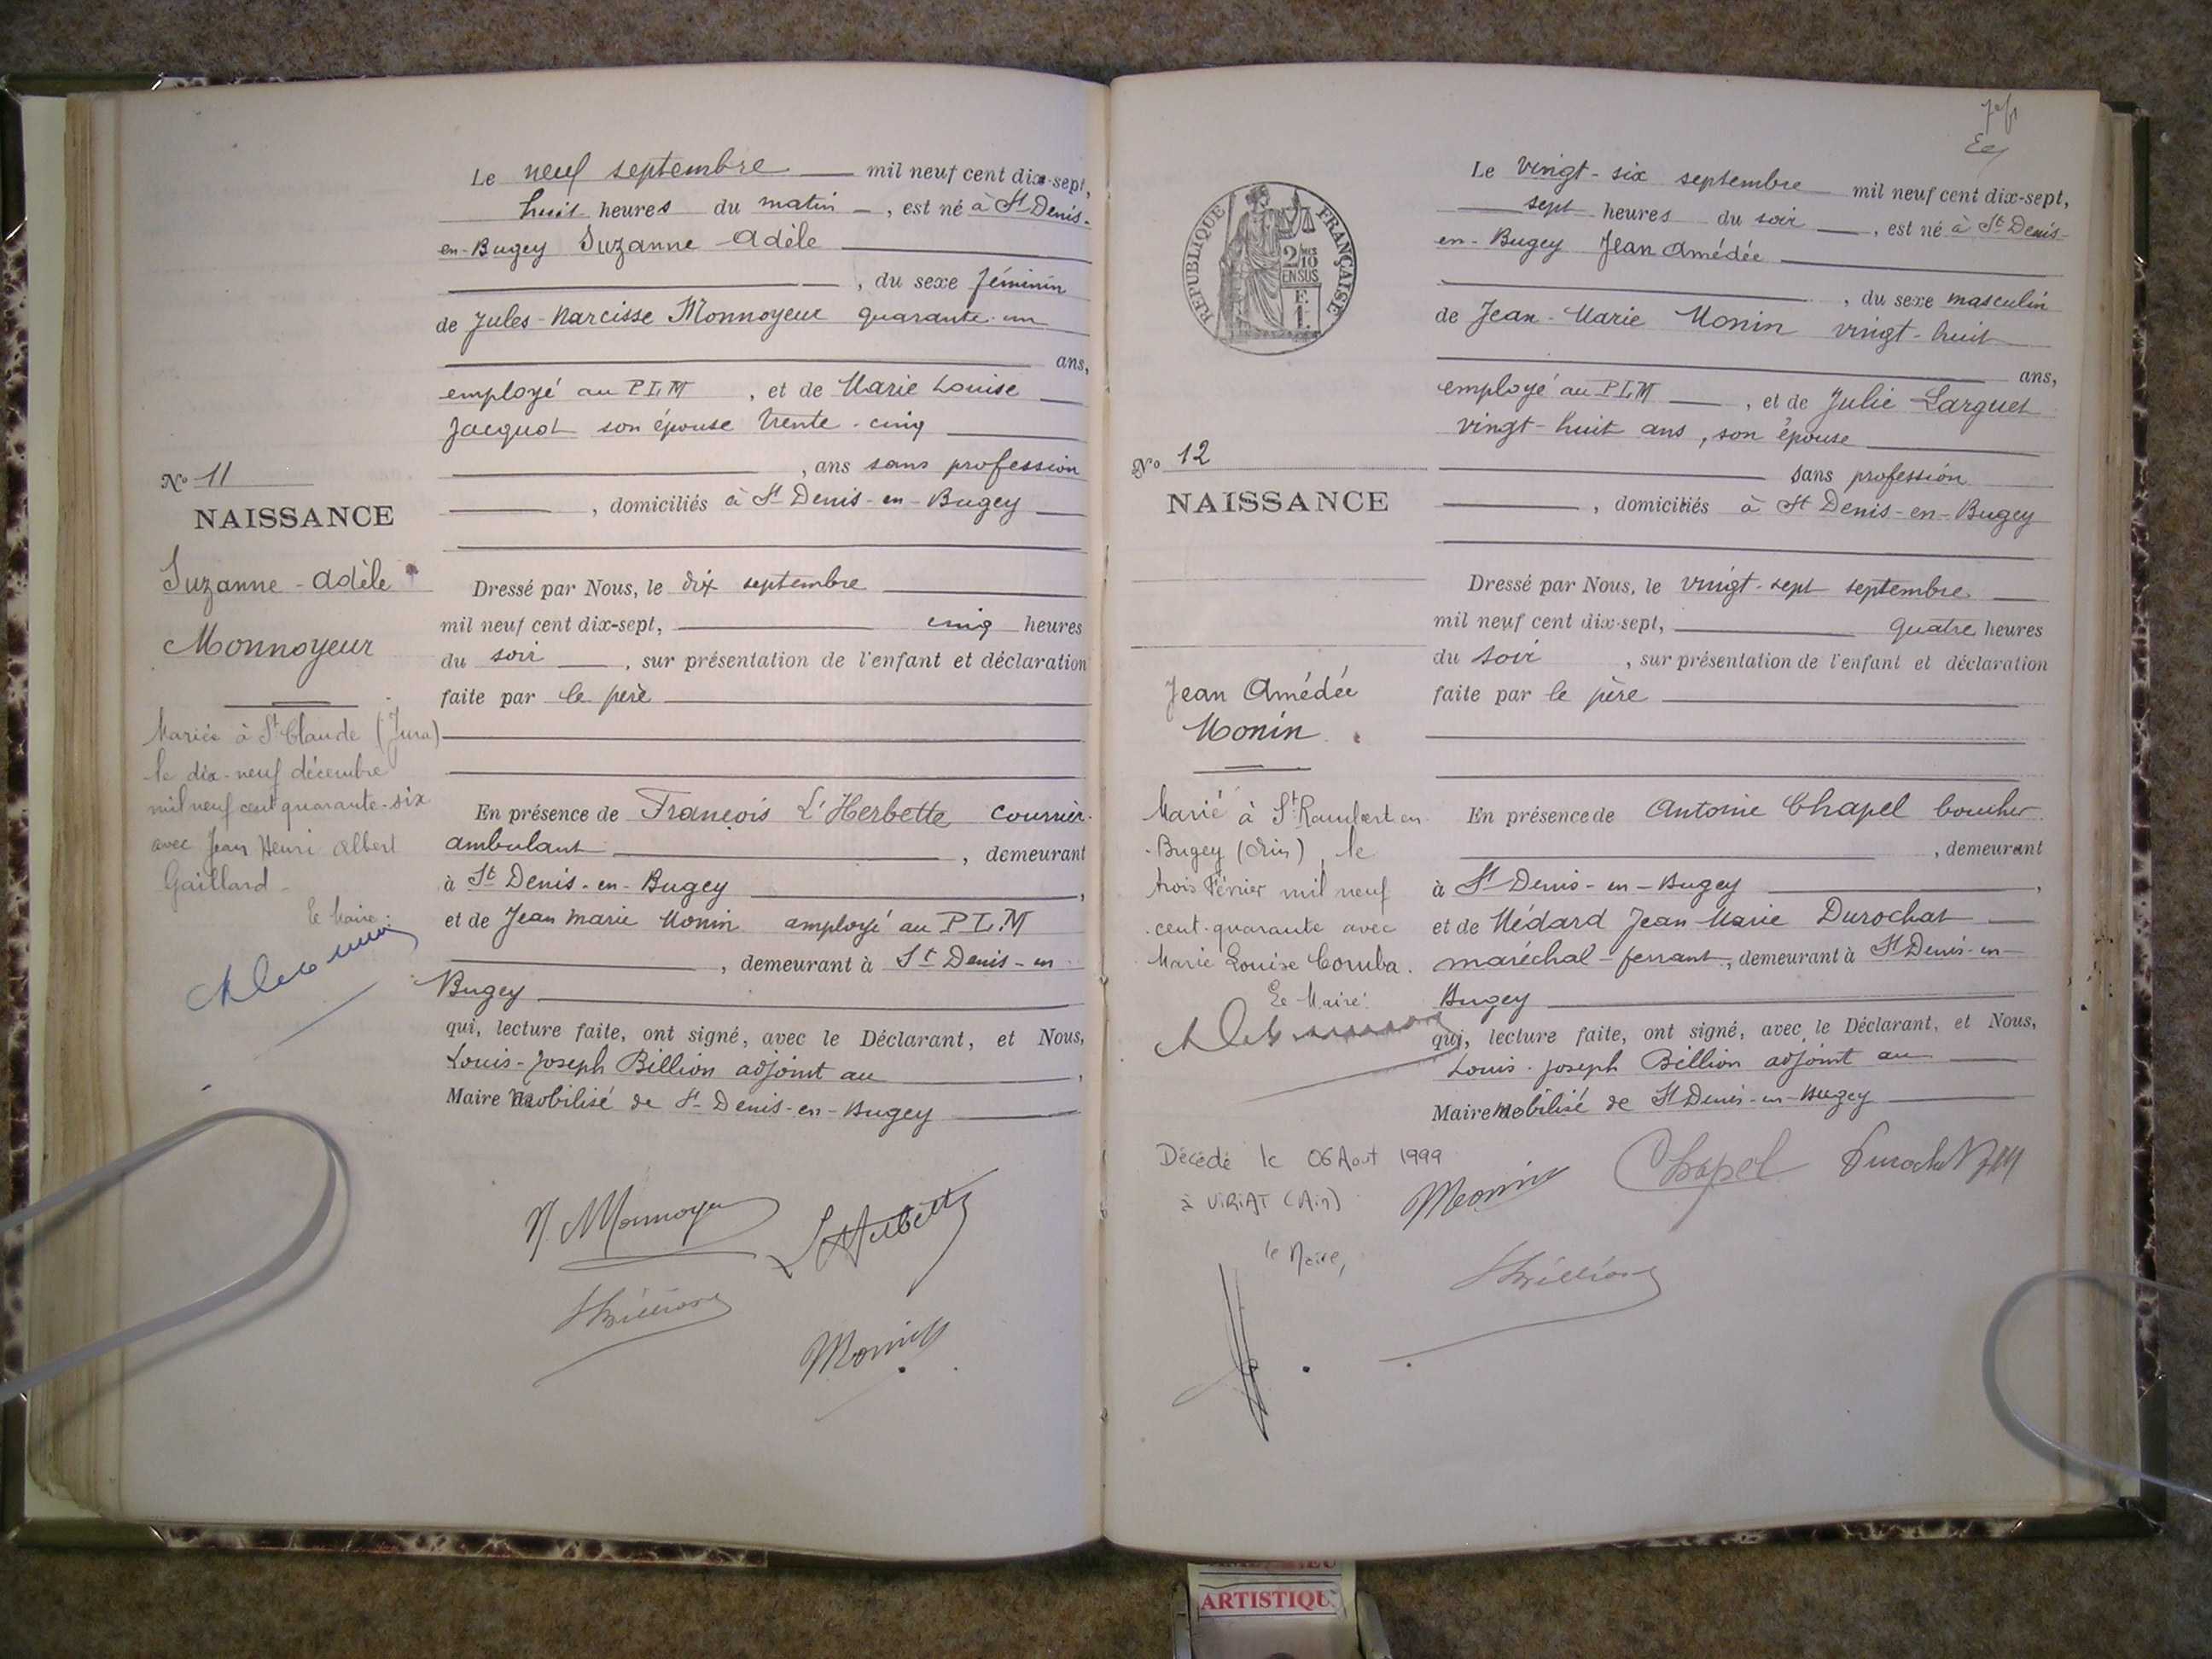 Le neuf septembre mil neuf cent dix-sept,
huit heures du matin, est né à St Denis-
en-Bugey Suzanne Adèle
, du sexe féminin
de Jules-Narcisse Monnoyeur quarante-un
ans,
employé au PLM, et de Marie Louise
Jacquot son épouse trente-cinq
, ans sans profession
, domiciliés à St Denis-en-Bugey
No 11
NAISSANCE
Suzanne-Adèle
Monnoyeur
Dressé par Nous, le dix septembre
mil neuf cent dix-sept, cinq heures
du soir, sur présentation de l'enfant et déclaration
faite par le père
Mariée à St Claude (Jura)
le dix-neuf décembre
mil neuf cent quarante-six
avec Jean Henri Albert
Gaillard
le Maire:
En présence de François L'Herbette courrier-
ambulant, demeurant
à St Denis-en-Bugey,
et de Jean Marie Monin employé au PLM
, demeurant à St Denis-en-
Bugey
qui, lecture faite, ont signé, avec le Déclarant, et Nous,
Louis-Joseph Billion adjoint au,
Maire Mobilisé de St Denis-en-Bugey
N. Monnoyeur
L'Herbette
Billion
Monin
RÉPUBLIQUE FRANÇAISE
2/10
EN SUS
F.
1.
Le vingt-six septembre mil neuf cent dix-sept,
sept heures du soir, est né à St Denis-
en-Bugey Jean Amédée
, du sexe masculin
de Jean-Marie Monin vingt-huit
ans,
employé au PLM, et de Julie Larguet
vingt-huit ans, son épouse
sans profession
, domiciliés à St Denis-en-Bugey
No 12
NAISSANCE
Jean Amédée
Monin
Dressé par Nous, le vingt-sept septembre
mil neuf cent dix-sept, quatre heures
du soir, sur présentation de l'enfant et déclaration
faite par le père
Marié à St Rambert-en
-Bugey (Ain), le
trois Février mil neuf
cent-quarante avec
Marie Louise Comba.
Le Maire:
En présence de Antoine Chapel boucher
, demeurant
à St Denis-en-Bugey,
et de Médard Jean Marie Durochat
maréchal-ferrant, demeurant à St Denis-en-
Bugey
qui, lecture faite, ont signé, avec le Déclarant, et Nous,
Louis-Joseph Billion adjoint au
Maire Mobilisé de St Denis-en-Bugey
Décédé le 06 Aout 1999
à VIRIAT (Ain)
le Maire,
Monin
Chapel
Durochat JM
Billion
ARTISTIQU